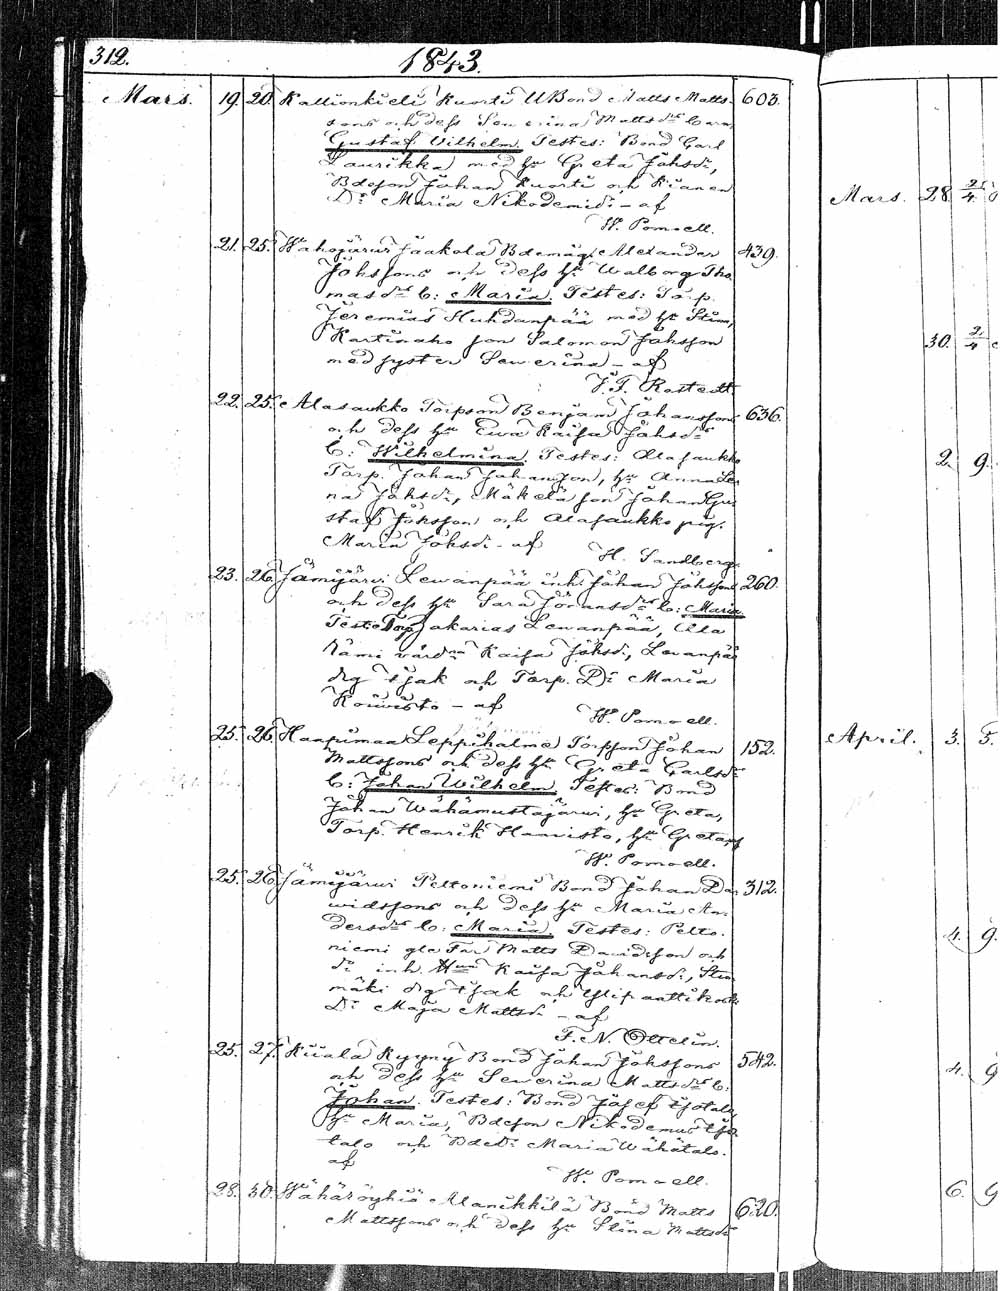 312.
1843.
Mars. 19. 20. Kallionkieli Kuorti UBond Matts Matts- 603.
sons och dess Severina Mattsdrs b:
Gustaf Vilhelm. Testes: Bond Carl
Laurikka med hu Greta Johsdr,
Bdeson Johan Kuorti och
Dr Maria Nikodemidr - af
W. Pomoell.
21. 25. Wahojärvi Jaakola Bdemåg Alexander 439.
Johssons och dess hu Walborg Tho-
masdrs b: Maria. Testes: Torp.
Jeremias Huhdanpää med hu Stina,
Kartinaho son Salomon Johsson
med syster Severina - af
Rostedt.
22. 25. Alasaukko Torpson Benjam Johanssons 636.
och dess hu Ewa Kaisa Johsdrs
b: Wilhelmina. Testes: Alasaukko
Torp. Johan Johansson, hu Anna Le-
na Johsdr, Mäkelä son Johan Gu-
staf Johsson och Alasaukko pig.
Maria Johsdr - af
H. Sandberg.
23. 26. Jämijärvi Lewanpää inh. Johan Johssons 260.
och dess hu Sara Johansdrs b: Maria
Testes Torp Zakarias Lewanpää, Ala
Rämi Kaisa Johsdr, Lewanpää
drg Isak och Torp. Dr Maria
Koiwisto - af
W. Pomoell.
25. 26. Haapimaa Leppihalme Torpson Johan 152.
Mattssons och dess hu Greta Carlsdrs
b: Johan Wilhelm. Testes: Bond
Johan Wähämustajärwi, hu Greta,
Torp. Henrik Hanisto, hu Greta af
W. Pomoell.
25. 26. Jämijärwi Peltoniemi Bond Johan Da- 312.
widssons och dess hu Maria An-
dersdrs b: Maria. Testes: Pelto-
niemi gle Far Matts Davidsson och
do inh. Hun Kaisa Johansdr,
mäki drg Isak och
Dr Maja Mattsdr - af
F. N. Ottelin.
25. 27. Kiiala Kyyny Bond Johan Johssons 542.
och dess hu Severina Mattsdrs b:
Johan. Testes: Bond Josef Isotalo
hu Maria, Bdeson Nikodemus Iso-
talo och Bdedr Maria Wähätalo.
af
W. Pomoell.
28. 30. Wähäröyhiö Alanikkilä Bond Matts 620.
Mattssons och dess hu Stina Mattsdrs
Mars. 28. 2/4
30. 2/4
2. 9.
April. 3. 5.
4. 9.
4. 9
6. 9